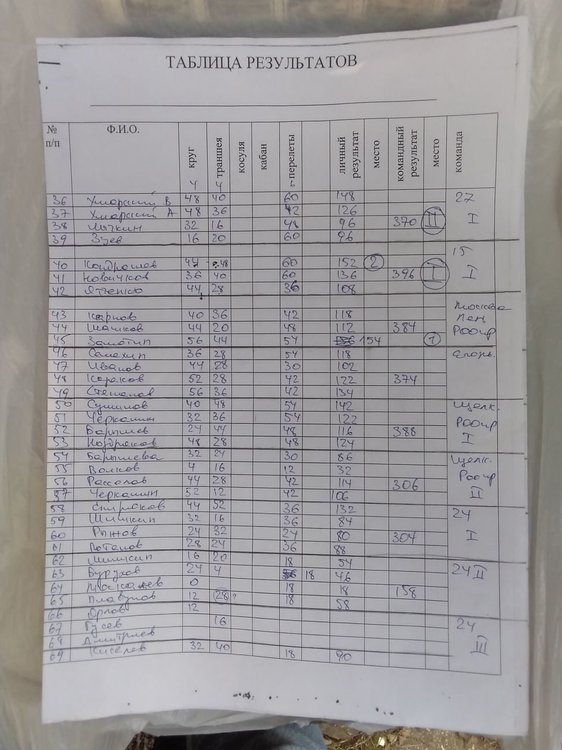 ТАБЛИЦА РЕЗУЛЬТАТОВ
№ п/п Ф.И.О. круг траншея косуля кабан перелеты личный результат место командный результат место команда
4 4 6
36 В 48 40 60 148 27
37 А 48 36 42 126
38 32 16 48 96 370 II I
39 Зуев 16 20 60 96
40 Кондрашов 48 60 152 2 15
41 Новичков 36 40 60 136 396 I I
42 Ятченко 44 28 36 108
43 Карпов 40 36 42 118 Москва
44 Шашков 44 20 48 112 384 Лен
45 Замотин 56 44 54 154 1 РООиР
46 Самохин 36 28 54 118
47 Иванов 44 28 30 102
48 52 28 42 122 374
49 Степанов 56 36 42 134
50 40 48 54 142 Щелк.
51 Черкашин 32 36 54 122 РООиР
52 Барышев 24 44 48 116 388 I
53 Кондраков 48 28 48 124
54 Барышева 32 24 30 86 Щелк.
55 Волков 4 16 12 32 РООиР
56 44 28 42 114 306 II
57 Черкашин 52 12 42 106
58 44 52 36 132 24
59 Шишкин 32 16 36 84 I
60 Рыжов 24 32 24 80 304
61 Потапов 28 24 36 88
62 16 20 18 54
63 24 4 18 46 24 II
64 0 18 18 158
65 12 28? 18 58
66 Орлов 12
67 Гусев 16 24
68 Дмитриев III
69 Киселев 32 40 18 90